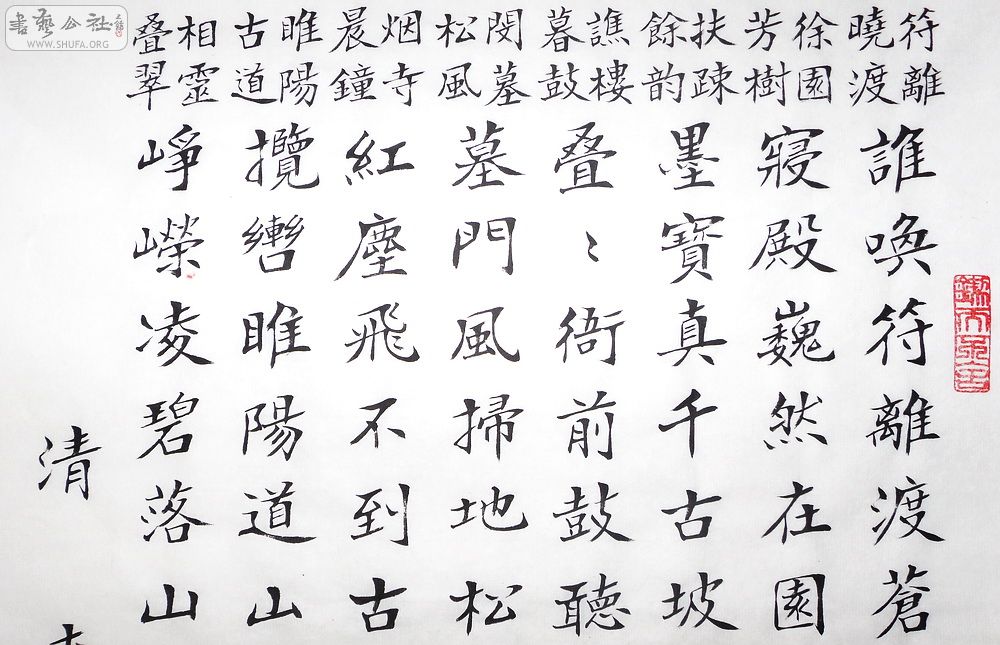 符離
曉渡
誰喚符離渡蒼
徐園
芳樹
寢殿巍然在園
扶疎
餘韵
墨寶真千古坡
譙樓
暮鼓
叠〻衙前鼓聽
閔墓
松風
墓門風掃地松
烟寺
晨鐘
紅塵飛不到古
睢陽
古道
攬轡睢陽道山
相靈
叠翠
崢嶸凌碧落山
清
書藝公社
WWW.SHUFA.ORG